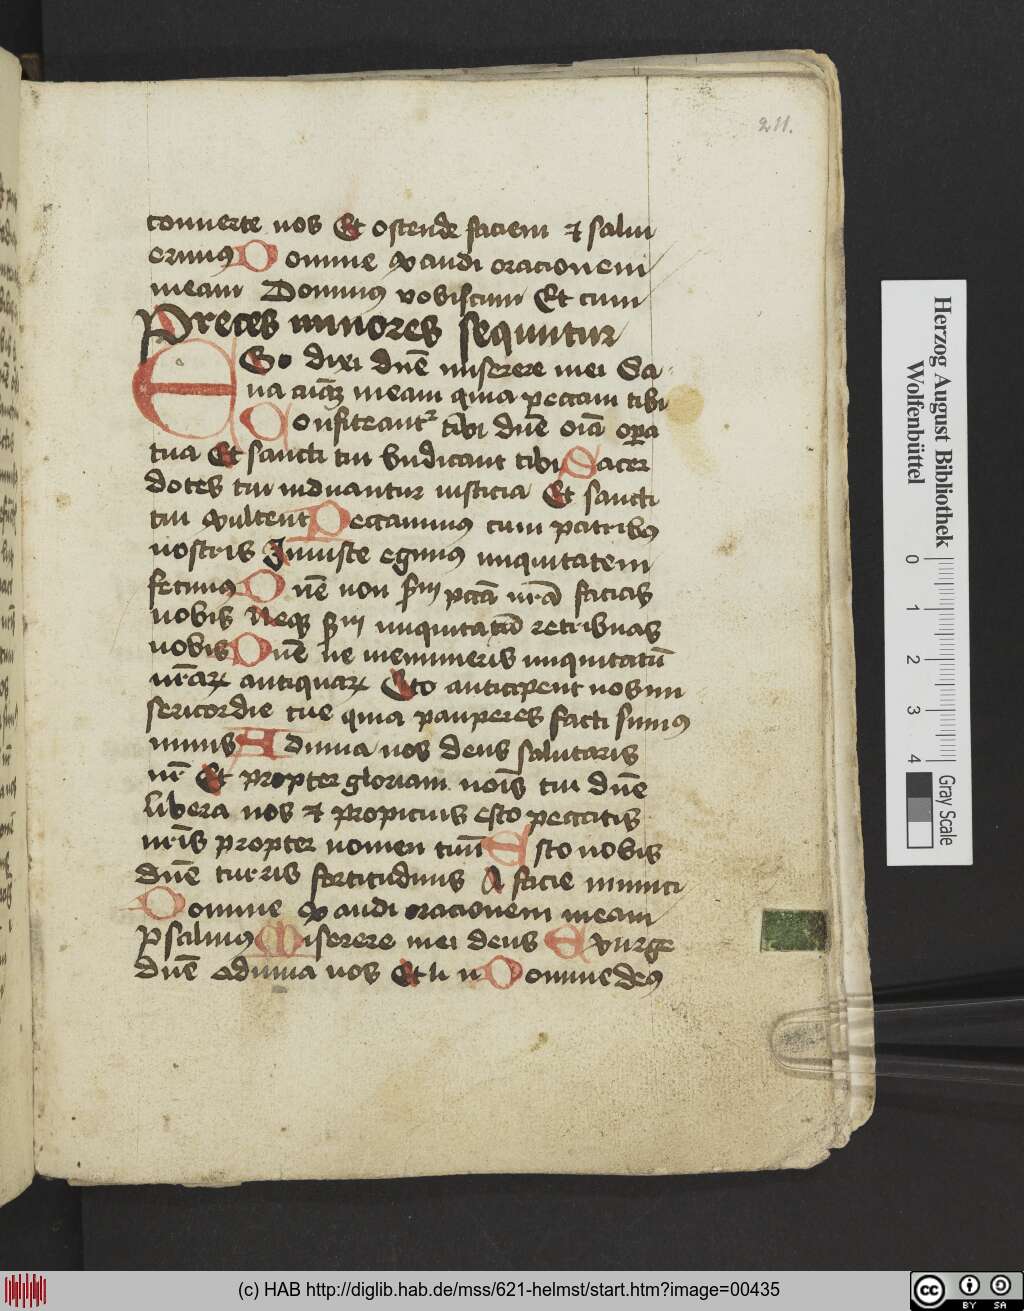 211.
conuerte nos Et ostende faciem et salui
erimus Domine exaudi oracionem
meam Dominus vobiscum Et cum
Preces minores sequuntur
EGo dixi dn̄e miserere mei Sa
na aīaz meam quia peccaui tibi
Confiteantr tibi dn̄e oīa opa
tua Et sancti tui bndicant tibi Sacer
dotes tui induantur iusticia Et sancti
tui exultent Peccauimus cum patribus
nostris Iniuste egimus iniquitatem
fecimus Dn̄e non scdm pctā nr̄a facias
nobis Neqz scdm iniquitatū retribuas
nobis Dn̄e ne memineris iniquitatū
nr̄arꝝ antiquarꝝ Cito anticipent nos mi
sericordie tue quia pauperes facti sumus
nimis Adiuua nos deus salutaris
nr̄ Et propter gloriam nois tui dn̄e
libera nos et propicius esto peccatis
nr̄is propter nomen tuū Esto nobis
dn̄e turris fortitudinis A facie inimici
Domine exaudi oracionem meam
Psalmus Miserere mei deus Exurge
dn̄e adiuua nos Et li n Domine deus
Herzog August Bibliothek
Wolfenbüttel
0 1 2 3 4
Gray Scale
(c) HAB http://diglib.hab.de/mss/621-helmst/start.htm?image=00435
cc BY SA